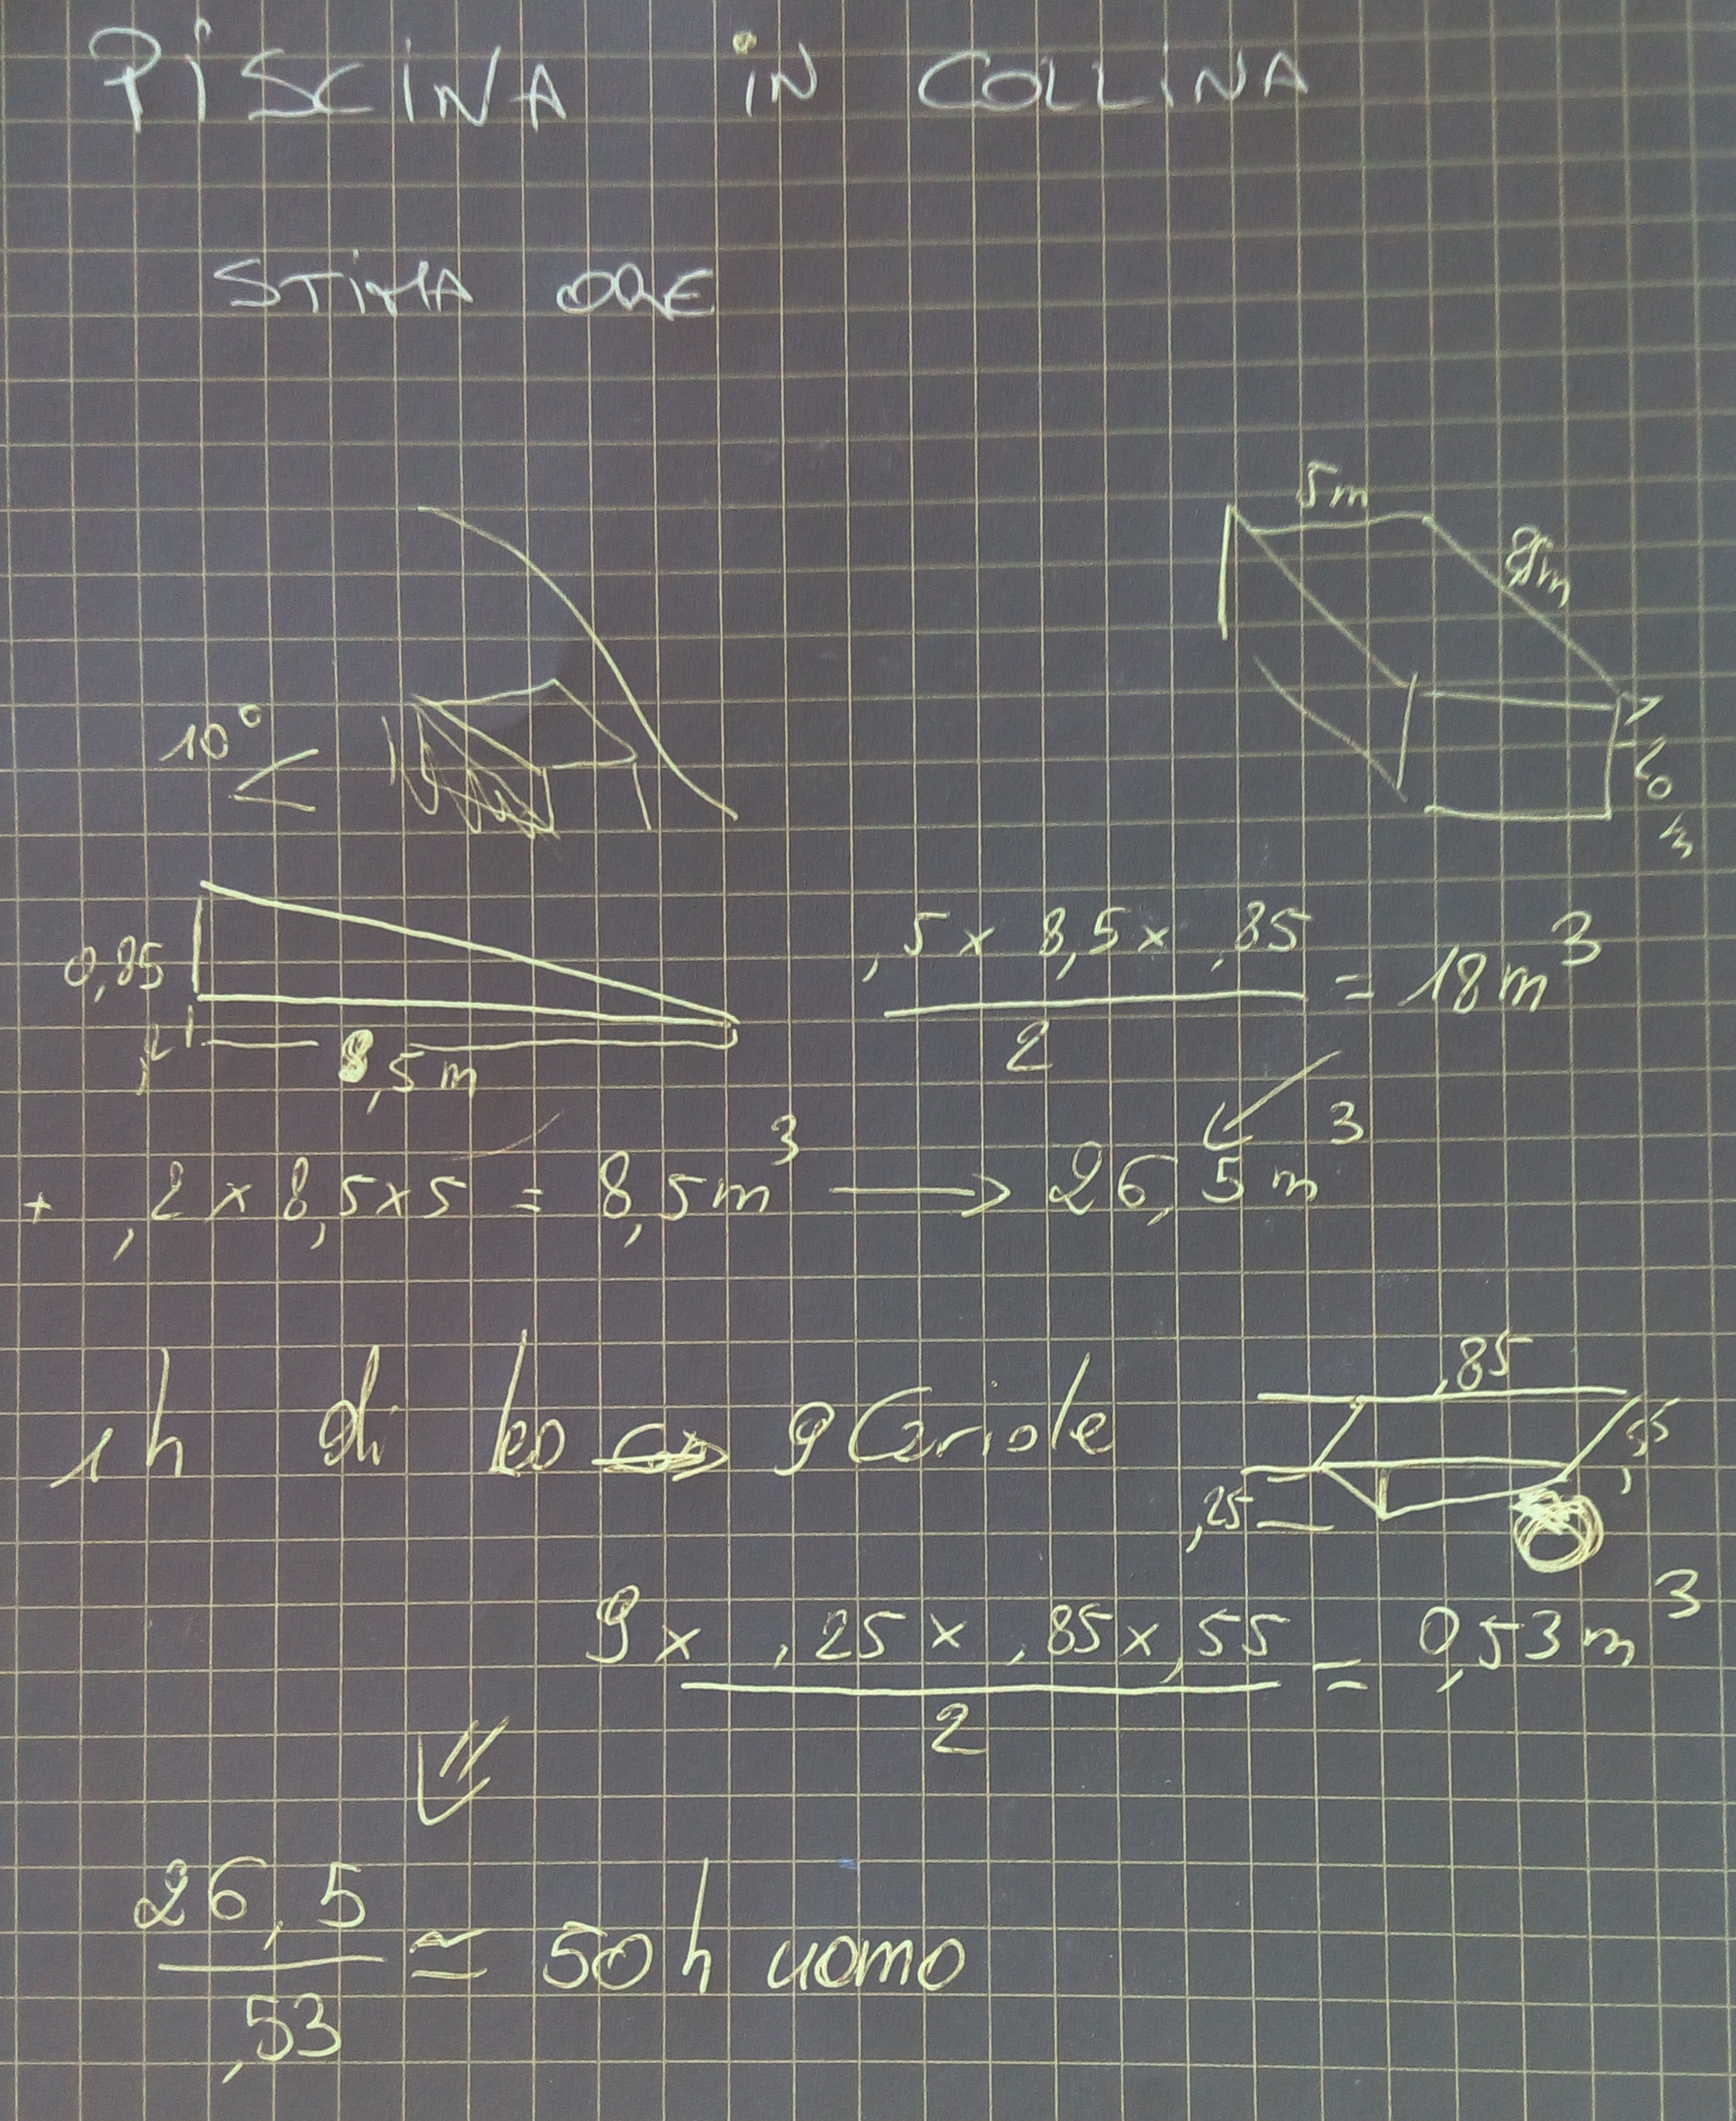 PISCINA IN COLLINA
STIMA ORE
5m
8,5m
10°
,20 m
0,85
5 x 8,5 x ,85
2
= 18 m³
,2
8,5 m
+ ,2 x 8,5 x 5 = 8,5 m³ → 26,5 m³
1h di leo ⇔ 9 Cariole
,85
,55
,25
9 x ,25 x ,85 x ,55
2
= 0,53 m³
26,5
,53
≃ 50 h uomo